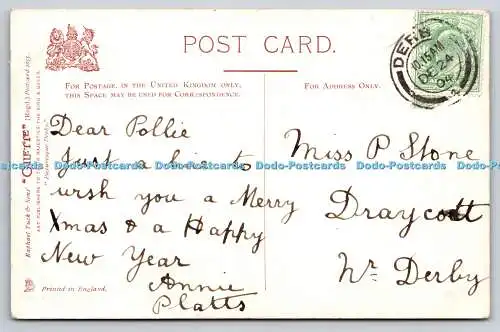 POST CARD.
FOR POSTAGE IN THE UNITED KINGDOM ONLY,
THIS SPACE MAY BE USED FOR CORRESPONDENCE.
FOR ADDRESS ONLY.
Dear Pollie
Just a line to
wish you a Merry
Xmas & a Happy
New Year
Annie
Platts
Miss P Stone
Draycott
Nr Derby
DERBY
10.15AM
DE 24
04
Raphael Tuck & Sons' "OILETTE" [Regd.] Postcard
ART PUBLISHERS TO THEIR MAJESTIES THE KING & QUEEN.
Printed in England.
Do-Postcards Do-Postcards Do-Postcards Do-Postcards Do-Postcards Do-Postcards